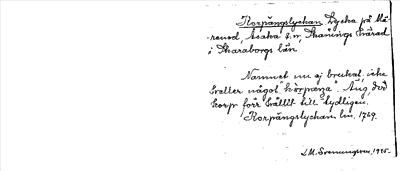 Korpängslychan. Lycka på Må-
rensd, Acaka s.n, Skånings härad
i Skaraborgs län.
Namnet nu ej brukat, icke
heller något "korpänga". Äng, der
korp förr hållit till tydligen.
Korpängslychan lm. 1769.
J.M. Svenungsson, 1925.